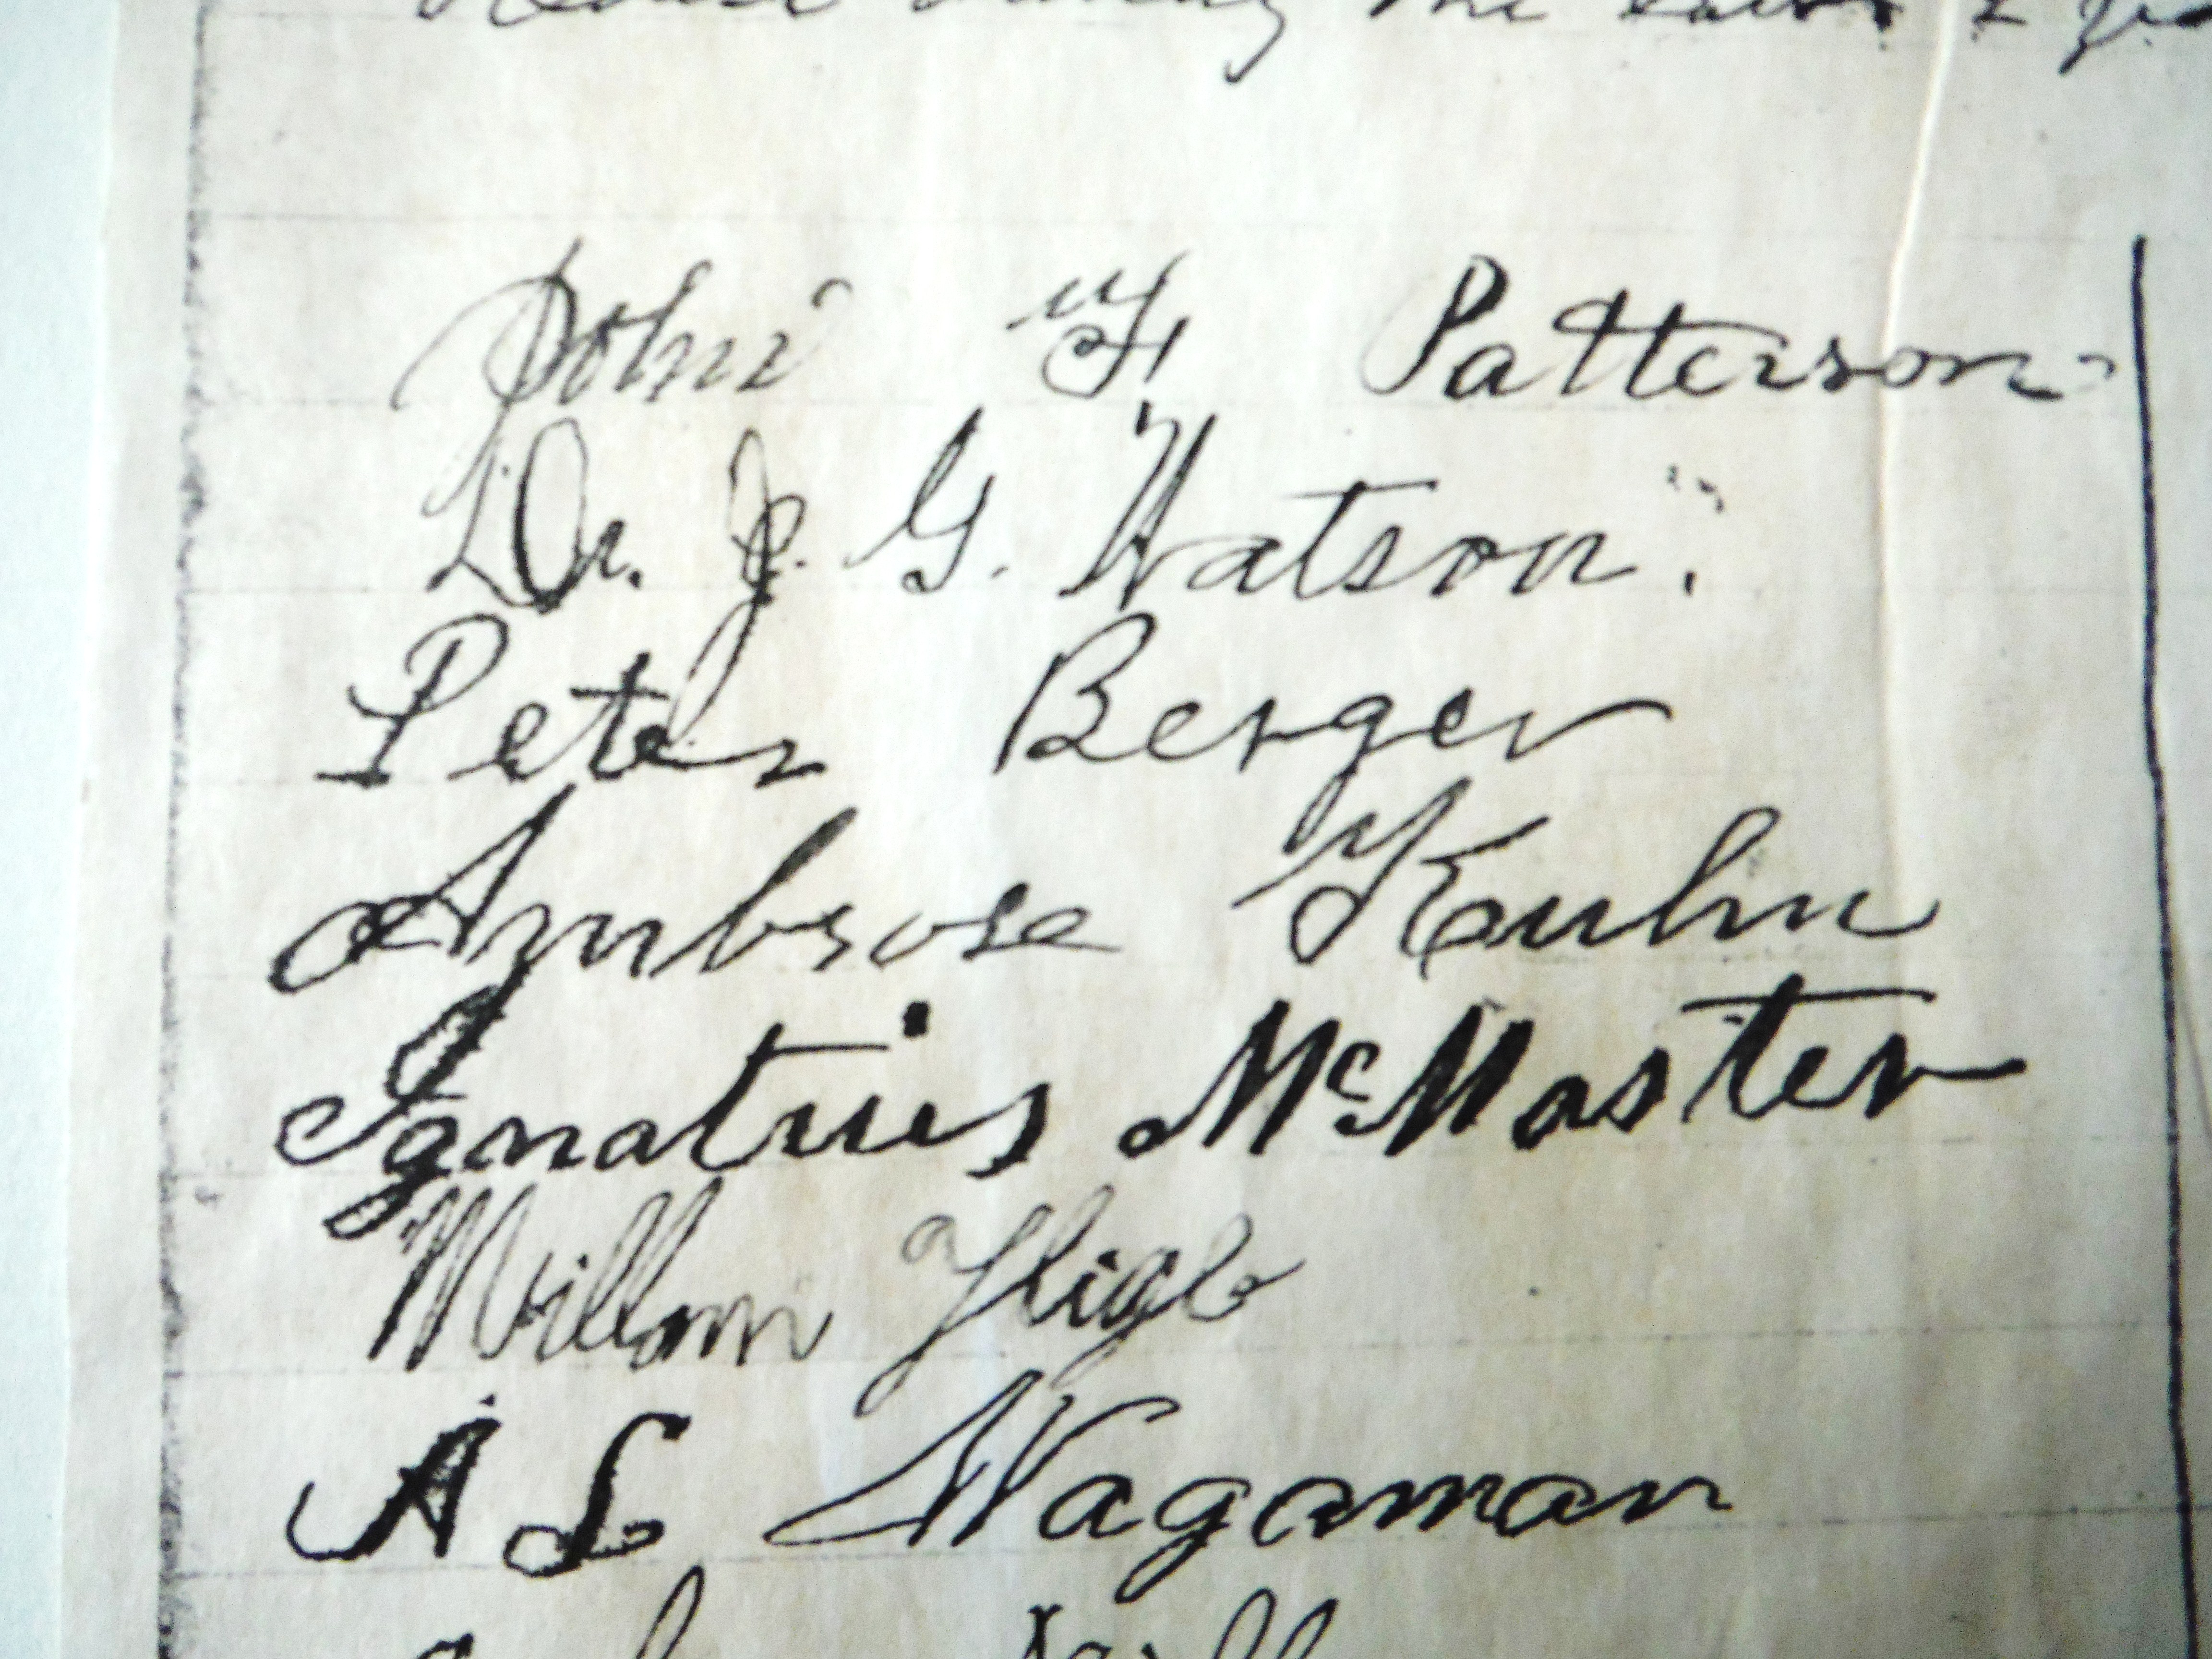 the
John F Patterson
Dr. J. G. Watson.
Peter Berger
Ambrose Kuhn
Ignatius McMaster
William
A L Wagaman